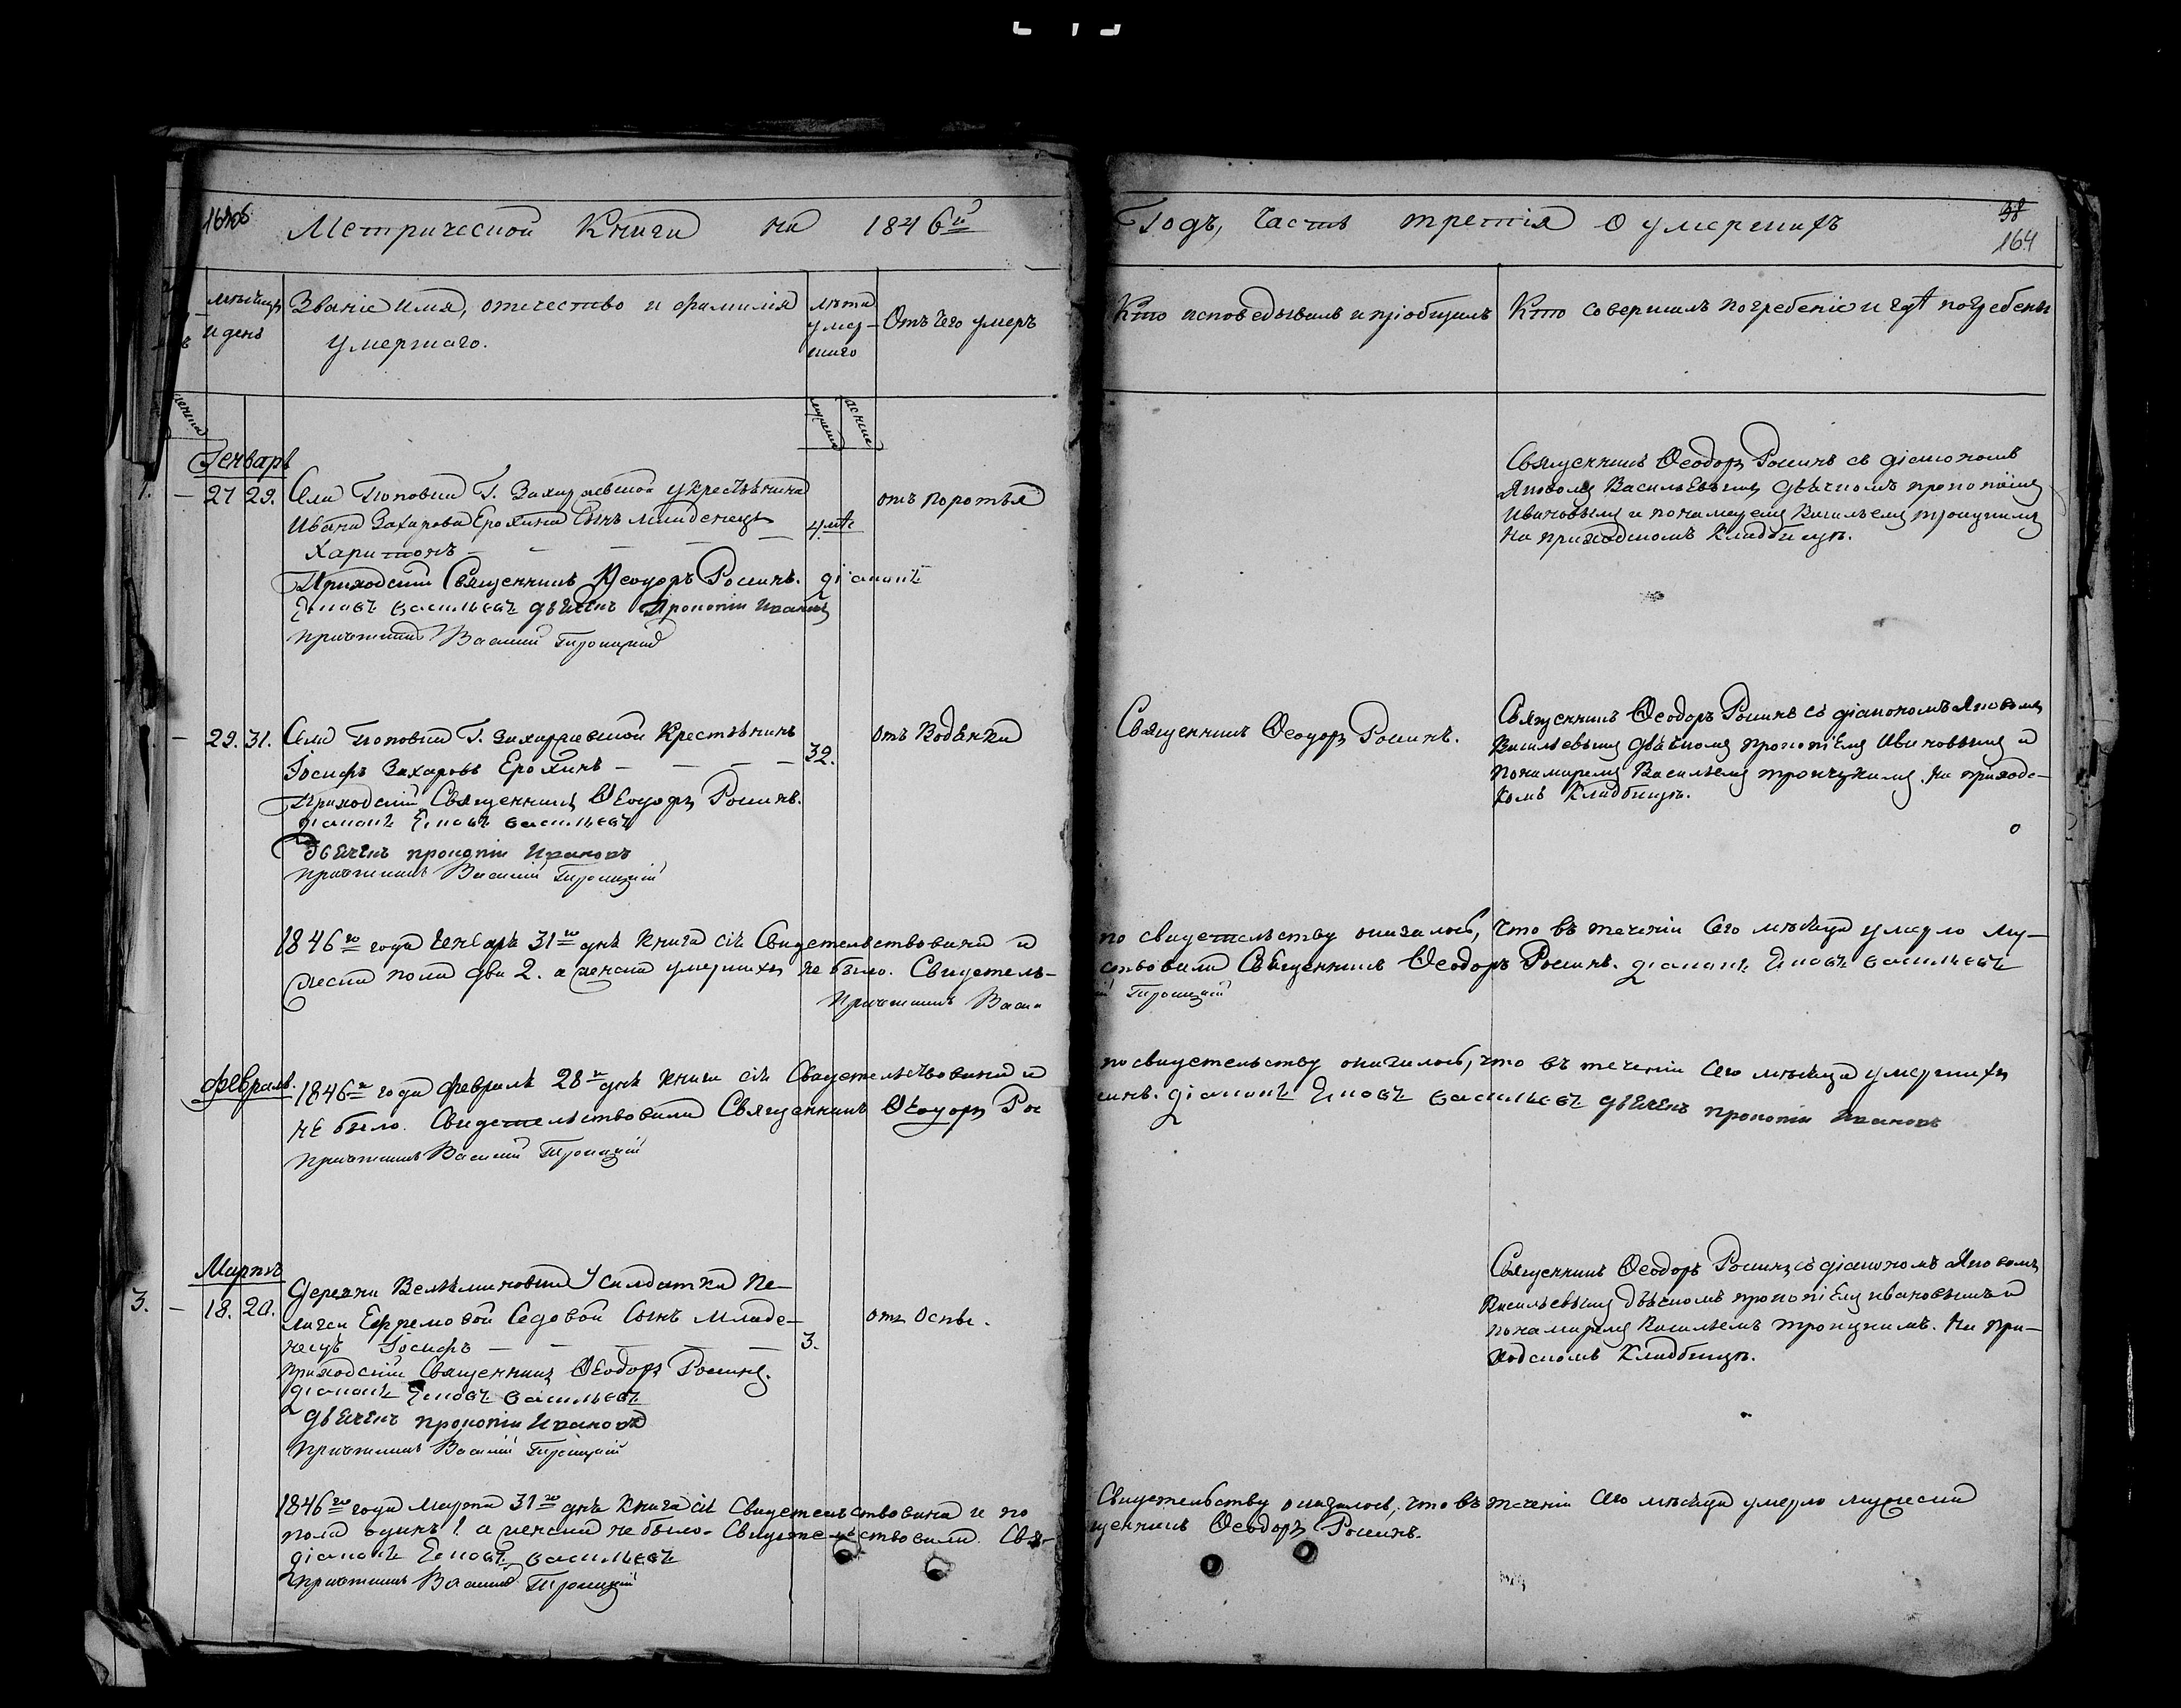 Метрической Книги на 1846й
Годъ, Часть третія О умершихъ
38
164
мѣсяцъ и день
Званіе имя, отечество и фамилія умершаго.
лѣта умер-
шаго
Отъ чего умеръ
Кто исповедывалъ и пріобщилъ
Кто совершилъ погребеніе и гдѣ погребены
Генварь
1. — 27 29. Села Поповки Г. Захаржевской у крестьянина
Ивана Захарова Ерохина Сынъ младенецъ
Харитонъ — — — —
4 лѣт
отъ поротья
Приходскій Священникъ Ѳеодоръ Рощинъ. діаконъ
Яковъ васильевъ дьячекъ Прокопіи Иванов
причетникъ Василій Троицкій
Священникъ Ѳеодоръ Рощинъ съ діакономъ
Яковомъ Васильевымъ дьячкомъ прокопіемъ
Ивановымъ и пономаремъ Васильемъ троицкимъ
На приходскомъ Кладбищѣ.
— 29. 31. Села Поповки Г. Захаржевской Крестьянинъ
Іосифъ Захаровъ Ерохинъ — — — —
32.
отъ Водянки
Приходскій Священникъ Ѳеодоръ Рощинъ.
діаконъ Яковъ васильевъ
дьячекъ прокопіи Ивановъ
причетникъ Василій Троицкій
Священникъ Ѳеодоръ Рощинъ.
Священникъ Ѳеодоръ Рощинъ съ діакономъ Яковомъ
Васильевымъ дьячкомъ прокопіемъ Ивановымъ и
пономаремъ Васильемъ троицкимъ На приходс-
комъ Кладбищѣ.
1846го года Генваря 31го дня книга сія Свидетельствована и по свидетельству оказалось, что въ теченіи Сего мѣсяца умерло му-
жеска пола два 2. а женска умершихъ не было. Свидетель-
ствовали Священникъ Ѳеодоръ Рощинъ. діаконъ Яковъ васильевъ
Причетникъ Васи
й Троицкій
Февраль. 1846го года февраля 28го дня книга сія Свидетельствована и по свидетельству оказалось, что въ теченіи Сего мѣсяца умершихъ
не было. Свидетельствовали Священникъ Ѳеодоръ Ро
щинъ. діаконъ Яковъ васильевъ дьячекъ прокопіи Ивановъ
причетникъ Василій Троицкій
Мартъ
3. — 18. 20. Деревни Вельяминовки У салдатки Пе-
лагеи Ефремовой Седовой Сынъ младе-
нецъ Іосифъ — — — —
3.
отъ Оспы.
приходскій Священникъ Ѳеодоръ Рощинъ.
діаконъ Яковъ васильевъ
дьячекъ прокопіи Ивановъ
причетникъ Василій Троицкій
Священникъ Ѳеодоръ Рощинъ съ діакономъ Яковомъ
Васильевымъ дьячкомъ прокопіемъ ивановымъ и
пономаремъ Васильемъ троицкимъ. На при-
ходскомъ Кладбищѣ.
1846го года Марта 31го дня книга сія Свидетельствована и по Свидетельству оказалось, что въ теченіи Сего мѣсяца умерло мужеска
пола одинъ 1. а женска не было. Свидетельствовали. Свя-
щенникъ Ѳеодоръ Рощинъ.
діаконъ Яковъ васильевъ
причетникъ Василій Троицкій